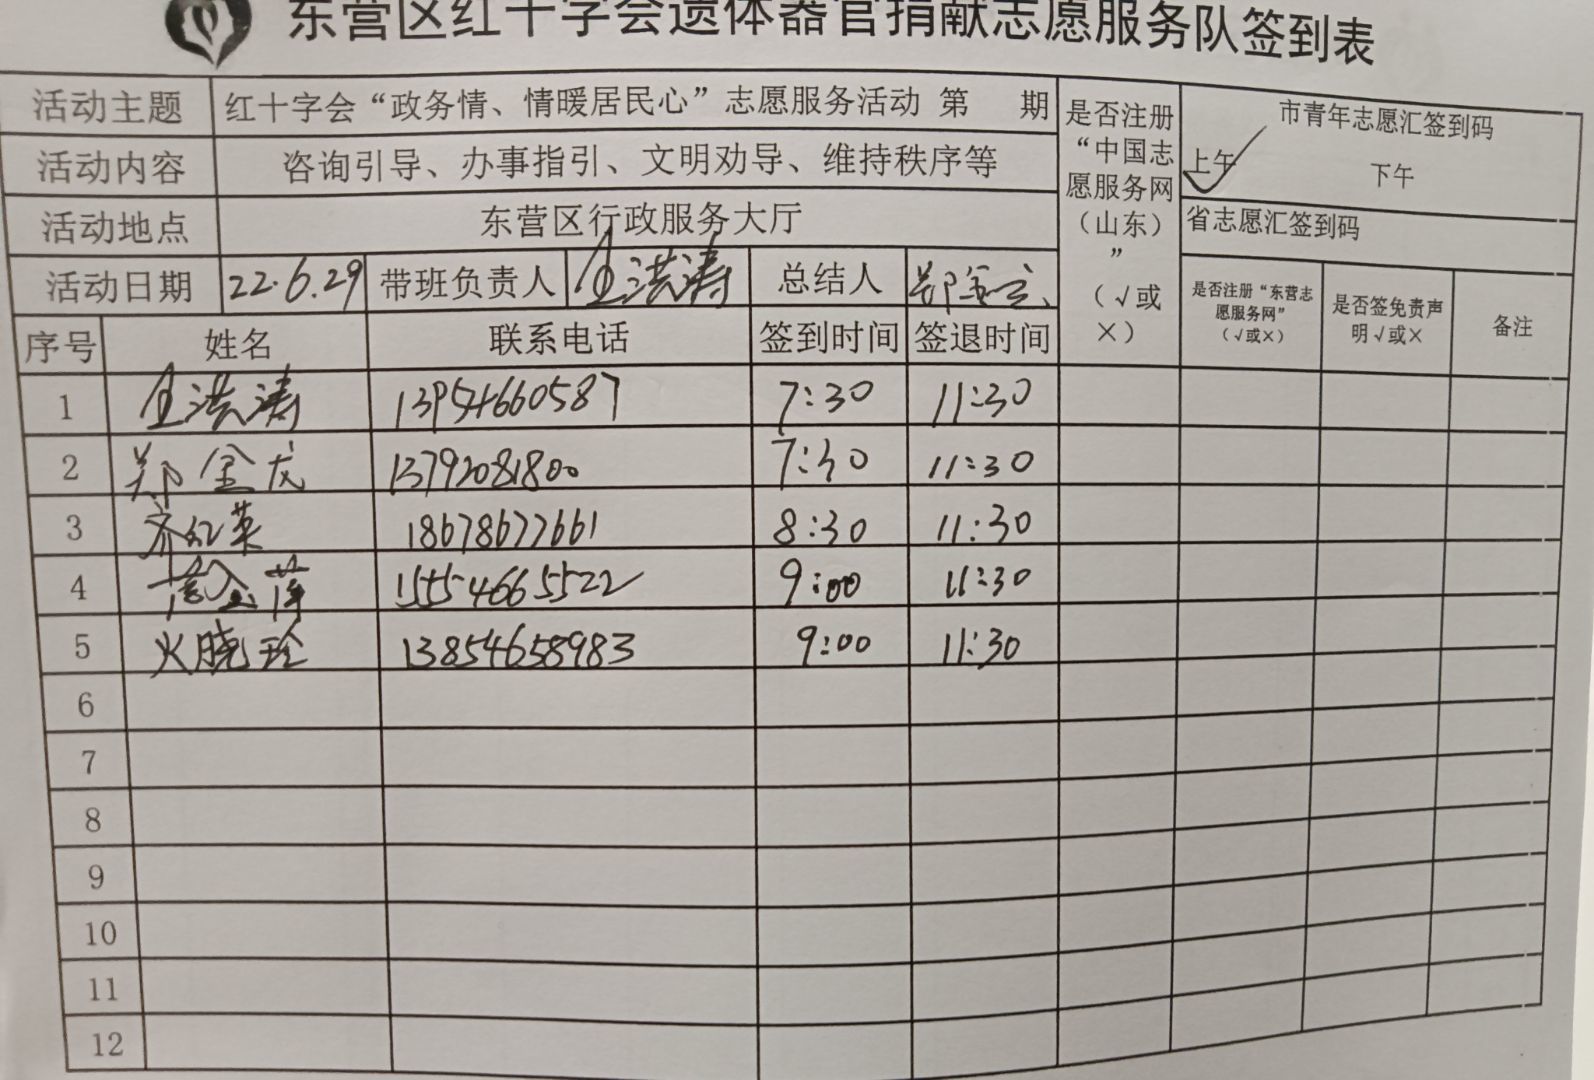 东营区红十字会遗体器官捐献志愿服务队签到表
活动主题 红十字会“政务情、情暖居民心”志愿服务活动 第 期
活动内容 咨询引导、办事指引、文明劝导、维持秩序等
活动地点 东营区行政服务大厅
活动日期 22.6.29 带班负责人 洪涛 总结人 郑金
是否注册
“中国志
愿服务网
（山东）
”
（√或
×）
市青年志愿汇签到码
上午 √ 下午
省志愿汇签到码
是否注册“东营志
愿服务网”
（√或×）
是否签免责声
明√或×
备注
序号 姓名 联系电话 签到时间 签退时间
1 洪涛 13954660587 7:30 11:30
2 郑金龙 13792081800 7:30 11:30
3 齐红英 18678677661 8:30 11:30
4 金萍 15554665522 9:00 11:30
5 火晓玲 13854658983 9:00 11:30
6
7
8
9
10
11
12